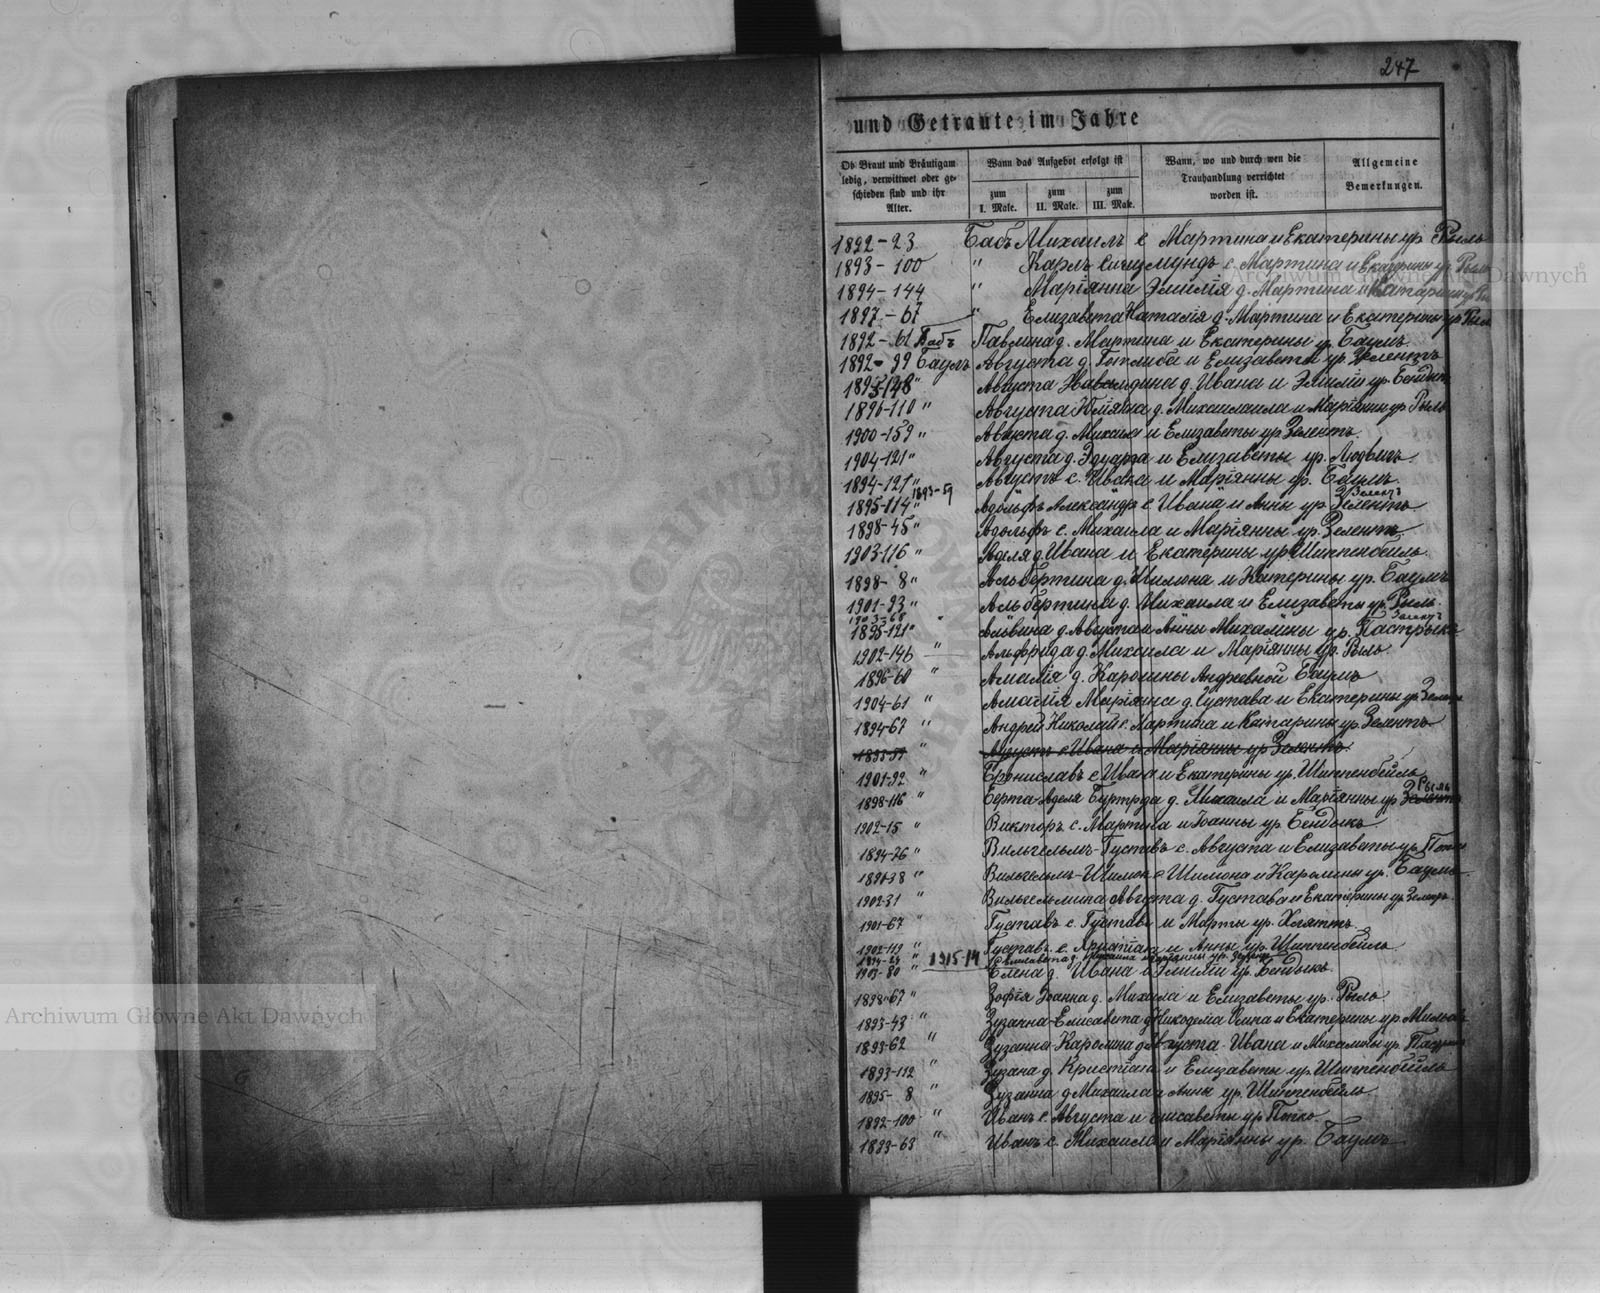 247
und Getraute im Jahre
Ob Braut und Bräutigam ledig, verwittwet oder geschieden sind und ihr Alter.
Wann das Aufgebot erfolgt ist
zum I. Male.
zum II. Male.
zum III. Male.
Wann, wo und durch wen die Trauhandlung verrichtet worden ist.
Allgemeine Bemerkungen.
1892-23 Бабъ Михаилъ с Мартина и Екатерины ур Рыль
1893-100 " Карлъ Сигизмундъ с Мартина и Екатерины ур. Рыль
1894-144 " Маріянна Эмилія д. Мартина и Катарины ур
1897-67 " Елизавета Наталія д. Мартина и Екатерины ур Рыль
1892-61 Бабъ Павлина д. Мартина и Екатерины ур. Баумъ
1892-99 Баумъ Августа д Готлиба и Елизаветы ур Зелентъ
" Августа д. Ивана и Эмиліи ур.
1896-110 " Августа Юліяна д. Михаила и Маріянны ур Рыль
1900-159 " Августа д. Михаила и Елизаветы ур Зелентъ
1904-121 " Августа д. Эдуарда и Елизаветы ур. Людвигъ
1894-121 " Августъ с. Ивана и Маріянны ур. Баумъ
1893-59 Зелентъ
1895-114 " Адольфъ Александръ с Ивана и Анны ур Зелентъ
1898-45 " Адольфъ с. Михаила и Маріянны ур. Зелентъ
1903-116 " Аделя д Ивана и Екатерины ур Шиппенбейль
1898-8 " Альбертина д. Шимона и Катерины ур. Баумъ
1901-93 " Альбертина д. Михаила и Елизаветы ур. Рыль
1903-68 "
1895-121 " Альвина д. Августа и Анны Михалины ур.
1902-146 " Альфрида д. Михаила и Маріянны ур. Рыль
1896-60 " Амалія д. Каролины Андреевной Баумъ
1904-61 " Амалія Маріянна д. Густава и Екатерины ур Зелентъ
1894-67 " Андрей Николай с. Мартина и Катарины ур. Зелентъ
1893-59 " Августъ с Ивана и Маріянны ур Зелентъ
1901-92 " Брониславъ с Ивана и Екатерины ур. Шиппенбейль
1898-116 " Берта-Аделя д. Михаила и Маріянны ур Зелентъ Рыль
1902-15 " Викторъ с. Мартина и Іоанны ур. Бендыкъ
1894-76 " Вильгельмъ-Густавъ с. Августа и Елизаветы ур.
" Вильгельмъ-Шимонъ с Шимона и Каролины ур. Баумъ
1902-31 " Вильгельмина Августа д. Густава и Екатерины ур. Зелентъ
1901-67 " Густавъ с. Густава и Марты ур.
1902-119 " Густавъ с. Христіана и Анны ур. Шиппенбейль
" 1915-14 Елисавета д. Михаила и Маріянны ур.
1903-80 " Елена д. Ивана и Эмиліи ур. Бендыкъ
1898-67 " Зофія Іоанна д. Михаила и Елизаветы ур. Рыль
1893-43 " Зузанна-Елисавета д Никодема и Екатерины ур.
1893-62 " Зузанна-Каролина д Августа-Ивана и Михалины ур.
1893-112 " Зузана д. Кристіана и Елизаветы ур. Шиппенбейль
1895-8 " Зузанна д Михаила и Анны ур. Шиппенбейль
1892-100 " Иванъ с. Августа и Елисаветы ур
1893-63 " Иванъ с. Михаила и Маріянны ур. Баумъ
Archiwum Główne Akt Dawnych
Archiwum Główne Akt Dawnych